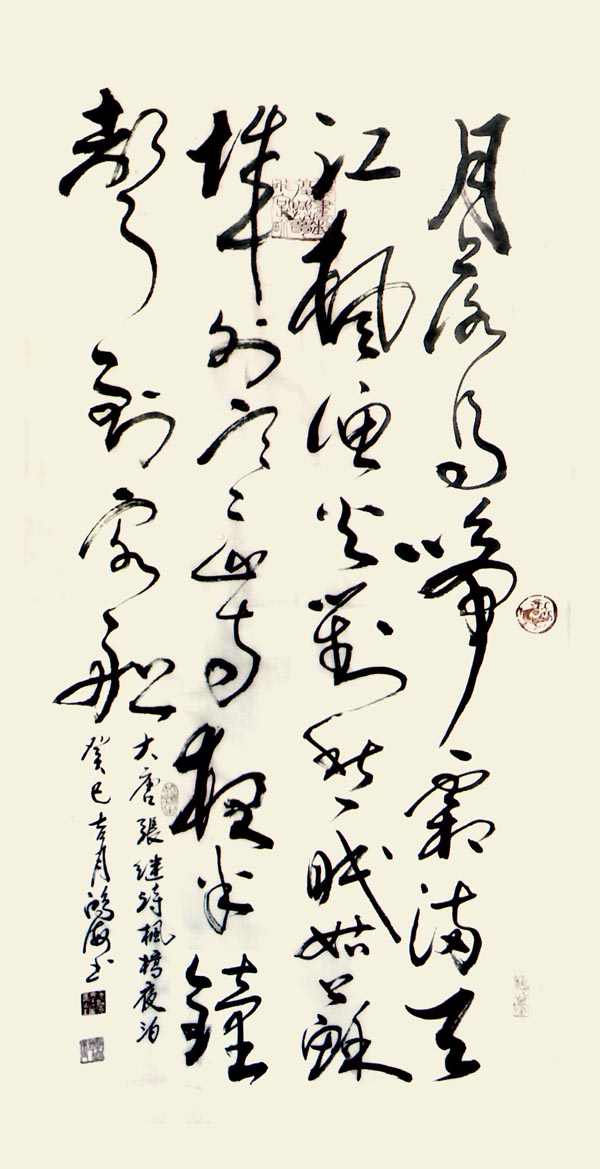 月落烏啼霜滿天
江楓漁火對愁眠姑蘇
城外寒山寺夜半鐘
聲到客船
大唐張继詩楓橋夜泊
癸巳吉月鴻海书